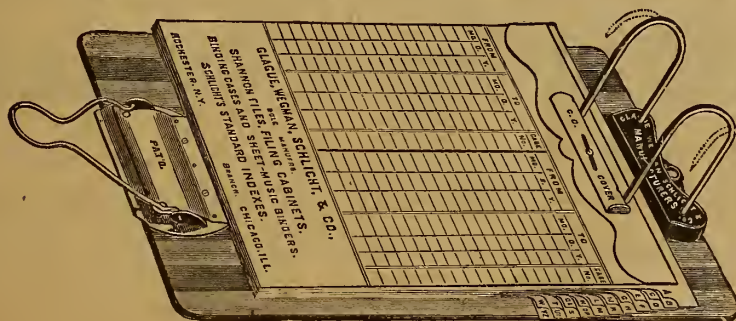 GLAGUE, WEGMAN, SCHLICHT, & CO.,
SOLE MANUFRS.
SHANNON FILES, FILING CABINETS,
BINDING CASES AND SHEET-MUSIC BINDERS.
SCHLICHT'S STANDARD INDEXES.
ROCHESTER, N.Y. BRANCH. CHICAGO, ILL.
FROM TO CASE FROM TO CASE
MO. D. Y. MO. D. Y. NO. MO. D. Y. MO. D. Y. NO.
C.C. COVER
MANUFACTURERS
PAT'D.